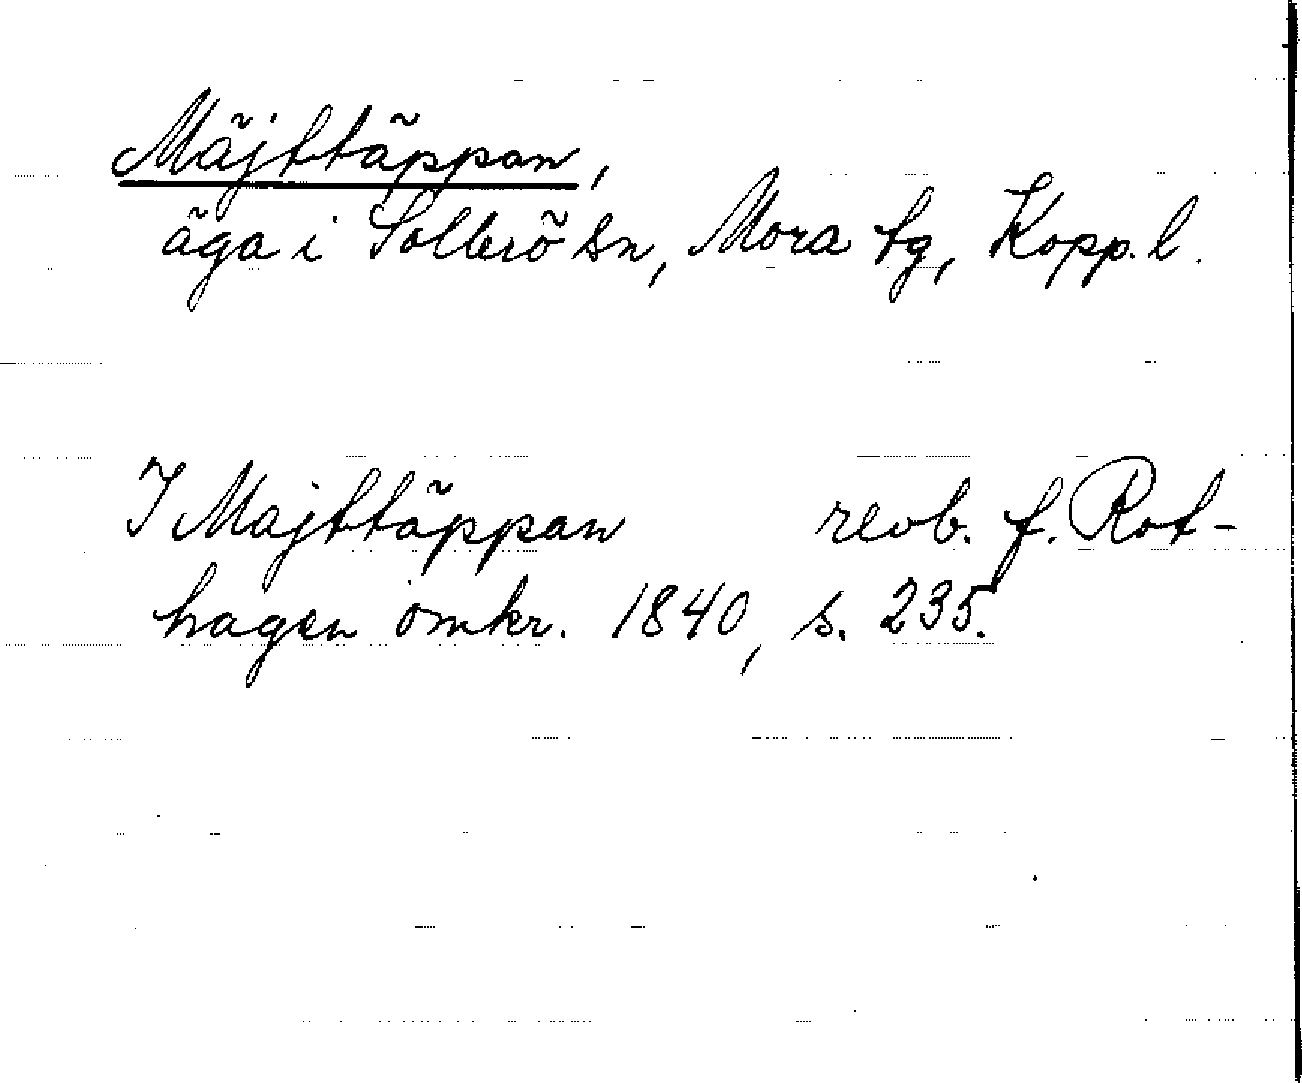 Mäjttäppan,
äga i Sollerö sn, Mora tg, Kopp. l.
I Majttäppan revb. f. Rot-
hagen omkr. 1840, s. 235.